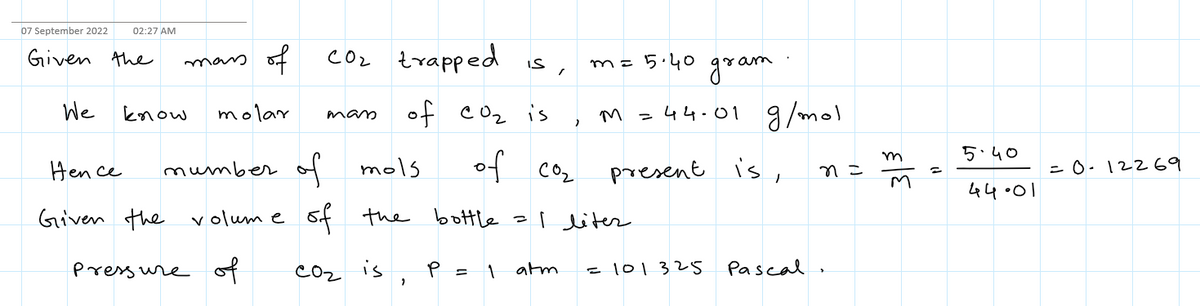 07 September 2022 02:27 AM
Given the mass of CO2 trapped is, m = 5.40 gram.
We know molar mass of CO2 is, M = 44.01 g/mol
Hence number of mols of CO2 present is, n = m/M = 5.40/44.01 = 0.12269
Given the volume of the bottle = 1 liter
Pressure of CO2 is, P = 1 atm = 101325 Pascal.